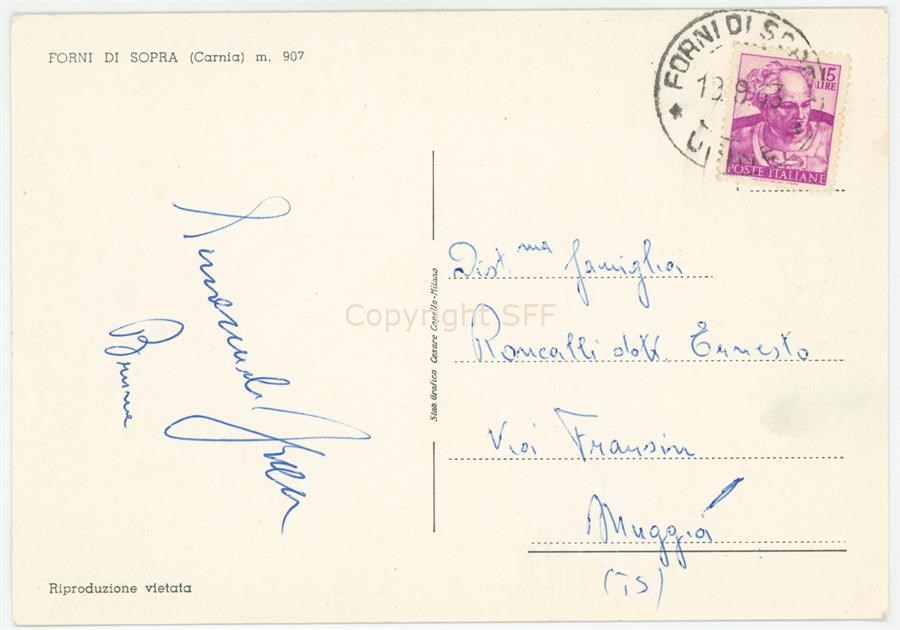 FORNI DI SOPRA (Carnia) m. 907
FORNI DI SOPRA
19.9.63
15
LIRE
POSTE ITALIANE
Brunna
Stab. Grafico Cesare Capello-Milano
Dist.ma famiglia
Roncalli dott. Ernesto
Via Fransin
Muggia
(TS)
Copyright SFF
Riproduzione vietata